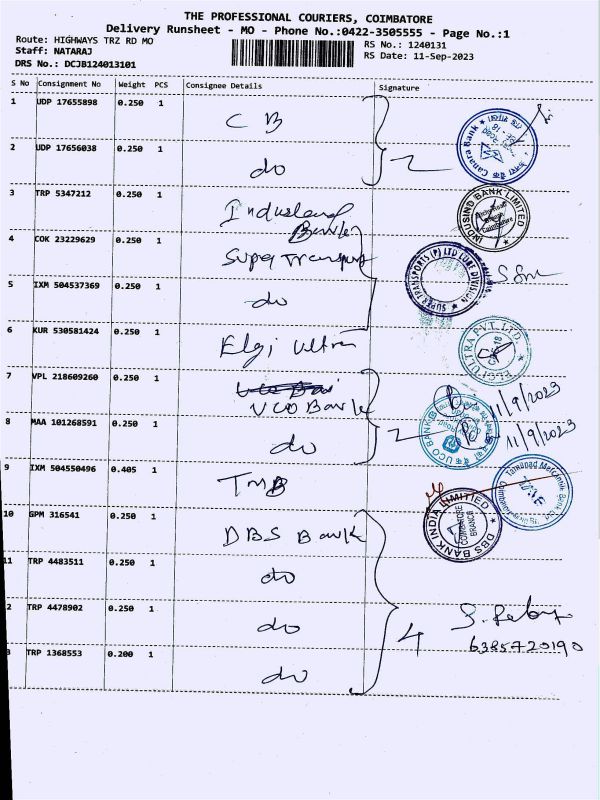 THE PROFESSIONAL COURIERS, COIMBATORE
Delivery Runsheet - MO - Phone No.:0422-3505555 - Page No.:1
Route: HIGHWAYS TRZ RD MO
Staff: NATARAJ
DRS No.: DCJB124013101
RS No.: 1240131
RS Date: 11-Sep-2023
S No Consignment No Weight PCS Consignee Details Signature
1 UDP 17655898 0.250 1 CB
2 UDP 17656038 0.250 1 do 2
Canara Bank
3 TRP 5347212 0.250 1 Indusland Bank
INDUSIND BANK LIMITED
Coimbatore
4 COK 23229629 0.250 1 Super Transport
SUPER TRANSPORTS (P) LTD
DIVISION
5 IXM 504537369 0.250 1 do
6 KUR 530581424 0.250 1 Elgi Ultra
ELGI ULTRA PVT. LTD.
7 VPL 218609260 0.250 1 UCO Bank
11/9/2023
8 MAA 101268591 0.250 1 do 2
UCO BANK
11/9/2023
9 IXM 504550496 0.405 1 TMB
Tamilnad Mercantile Bank
10 GPM 316541 0.250 1 DBS Bank
DBS BANK INDIA LIMITED
COIMBATORE
BRANCH
11 TRP 4483511 0.250 1 do
2 TRP 4478902 0.250 1 do 4
6385720190
3 TRP 1368553 0.200 1 do